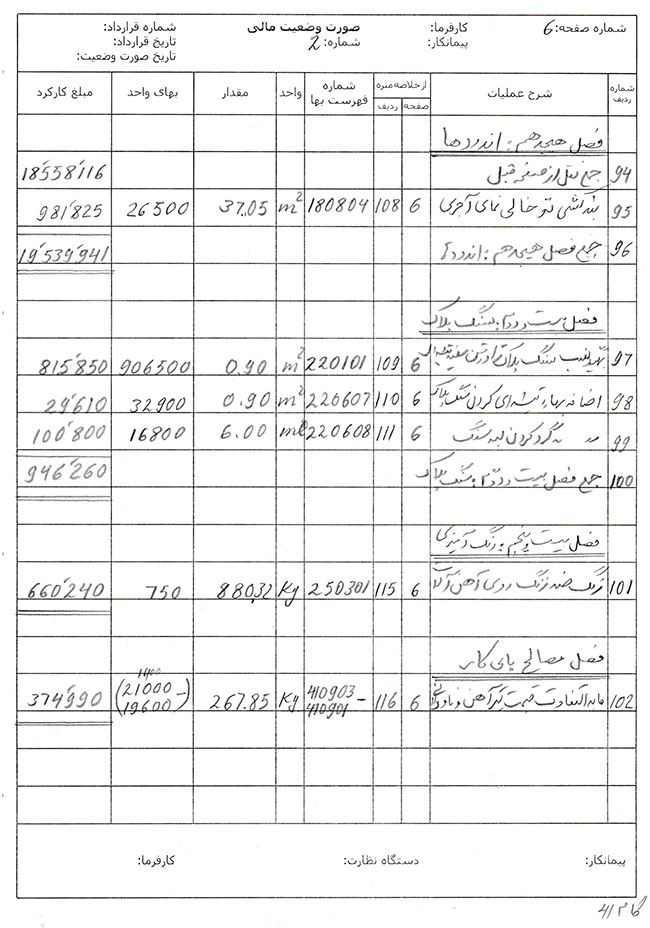 شماره صفحه: 6 کارفرما: صورت وضعیت مالی شماره قرارداد:
پیمانکار: شماره: 2 تاریخ قرارداد:
تاریخ صورت وضعیت:
شماره ردیف شرح عملیات از خلاصه متره صفحه ردیف شماره فهرست بها واحد مقدار بهای واحد مبلغ کارکرد
فصل هیجدهم: اندودها
94 جمع نقل از صفحه قبل 18'558'116
95 بندکشی تو خالی نمای آجری 6 108 180804 m² 37.05 26500 981'825
96 جمع فصل هیجدهم: اندودها 19'539'941
فصل بیست و دوم: سنگ پلاک
97 سنگ پلاک 6 109 220101 m² 0.90 906500 815'850
98 اضافه بهاء تیشه‌ای کردن سنگ پلاک 6 110 220607 m² 0.90 32900 29'610
99 〃 〃 گرد کردن لبه سنگ 6 111 220608 ml 6.00 16800 100'800
100 جمع فصل بیست و دوم: سنگ پلاک 946'260
فصل بیست و پنجم: رنگ آمیزی
101 رنگ ضد زنگ روی آهن آلات 6 115 250301 Kg 880.32 750 660'240
فصل مصالح پای کار
102 مابه‌التفاوت قیمت تیرآهن و ناودانی 6 116 410903 - 410901 Kg 267.85 1400 (21000 - 19600) 374'990
پیمانکار: دستگاه نظارت: کارفرما: